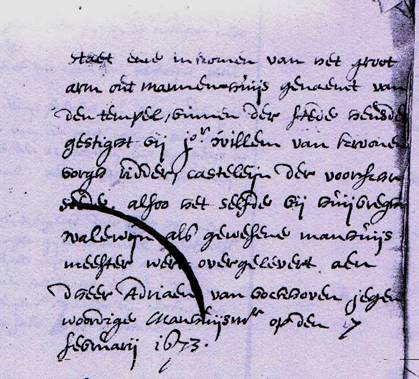 Staet ende inkomen van het groot
arm out mannenhuijs genaemt van
den tempel, binnen der stede heusde
gestight bij Jor willem van
borgh ridder, casteleijn der voorschr
stede, alsoo het selfde bij huijbregt
walewijn als gewesene manhuijs
meester wert overgelevert aen
dheer Adriaen van bockhoven jegen
woordige Manhuijsmr op den 7
februarij 1673.